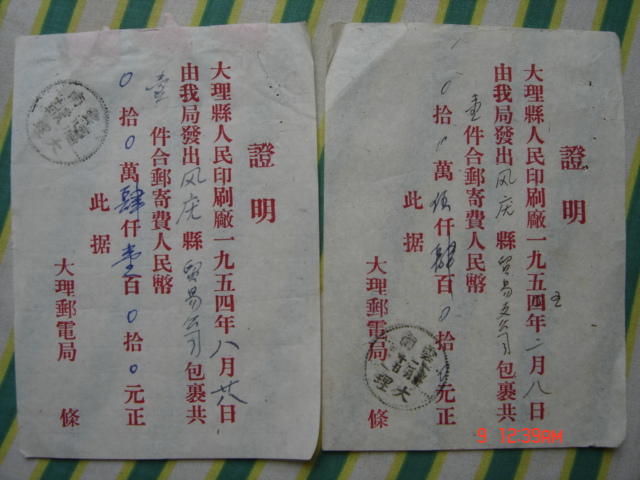 證明
大理縣人民印刷廠一九五四年八月廿八日
由我局發出风庆縣貿易公司包裹共
壹件合郵寄費人民幣
0拾0萬肆仟壹百0拾0元正
此据
大理郵電局條
雲南
大理
證明
大理縣人民印刷廠一九五四五年二月八日
由我局發出风庆縣貿易支公司包裹共
壹件合郵寄費人民幣
0拾0萬伍仟肆百0拾0元正
此据
大理郵電局條
雲南
大理
9 12:39AM